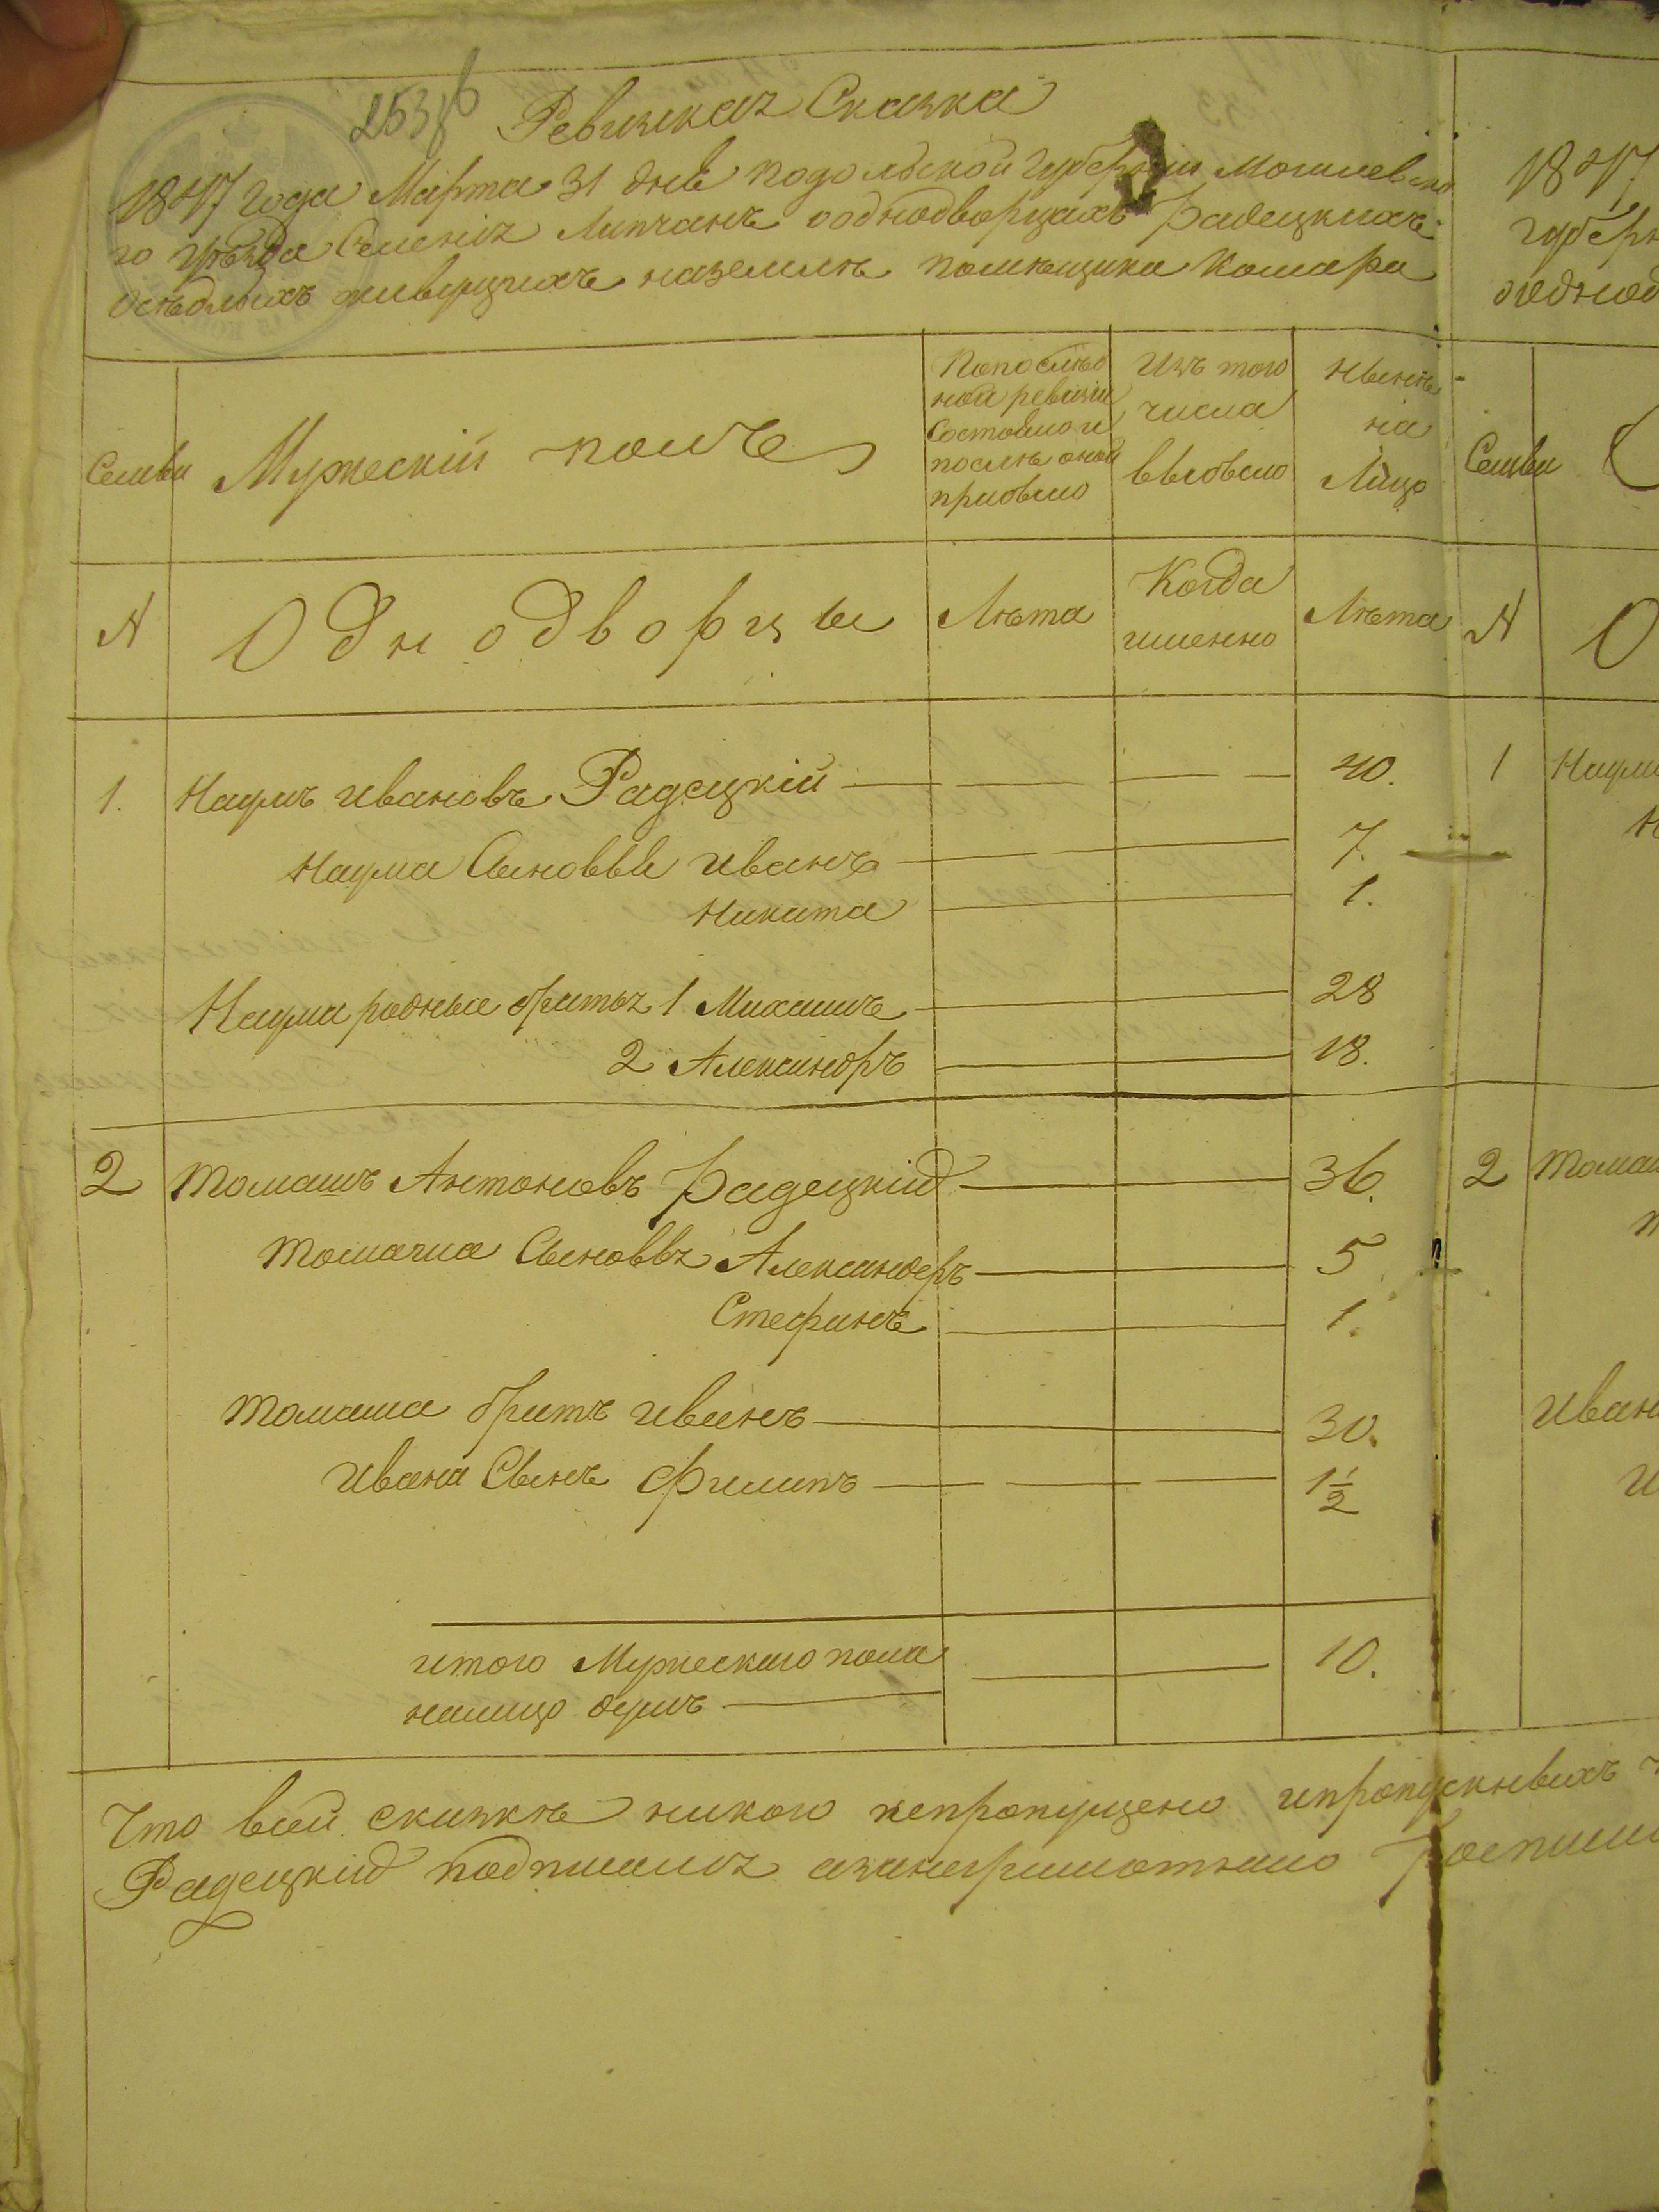 Ревизская Сказка
1847 года Марта 31 дня Подольской Губерніи Могилевска
го Уѣзда Селенія Липчанъ о однодворцахъ Радецкихъ
осѣдлыхъ живущихъ наземлѣ помѣщика Комара
Семьи
Мужескій полъ
Попослѣд
ной ревизіи
Состояло и
послѣ оной
прибыло
Изъ того
числа
выбыло
Нынѣ
на
Лицо
Семьи
N
Однодворцы
Лѣта
Когда
именно
Лѣта
N
О
1. Наумъ Ивановъ Радецкій 40.
Наума Сыновьи Иванъ 7.
Никита 1.
Наума родные братья 1 Михаилъ 28
2 Александръ 18.
2 Томашъ Антоновъ Радецкій 36.
Томаша Сыновья Александеръ 5
Стефанъ 1.
Томаша братъ Иванъ 30.
Ивана Сынъ Филипъ 1½
итого Мужескаго пола
налицо душъ 10.
Что всей сказкѣ никого непропущено ипропускныхъ
Радецкій подписался азанеграмотнаго
1847
губерн
ооднод
1 Наума
2 Томаш
Ивана